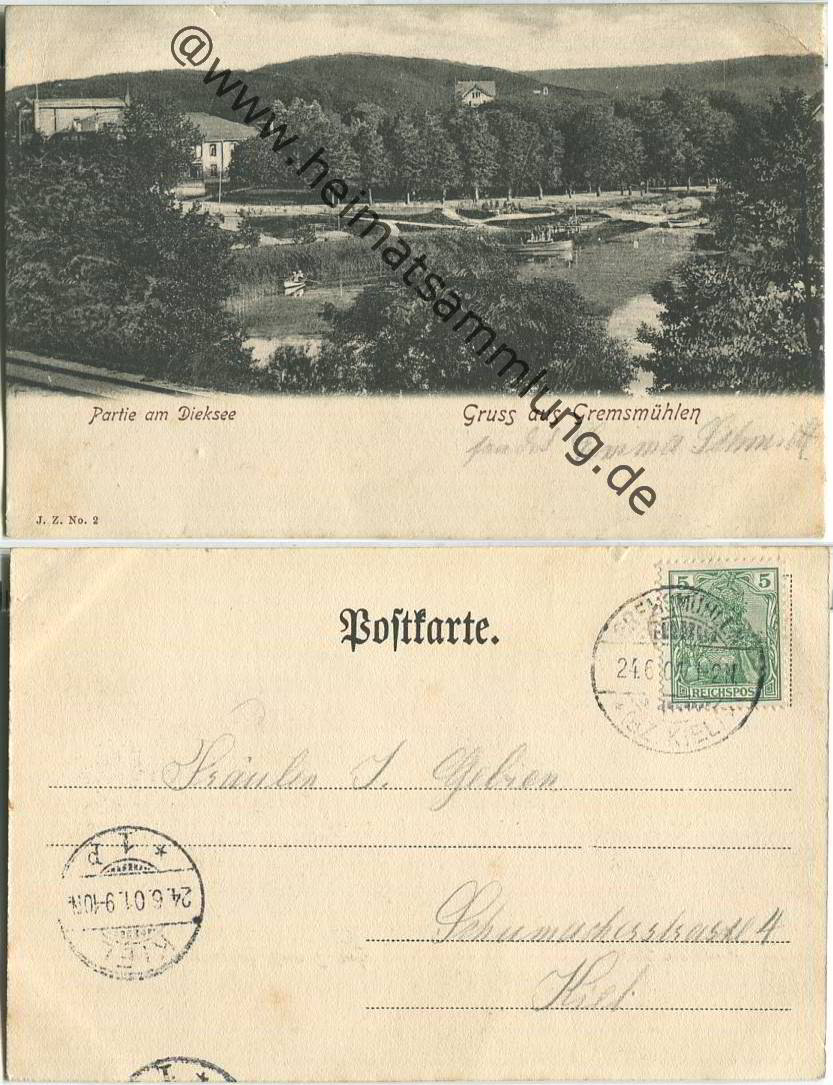 @www.heimatsammlung.de
Partie am Dieksee
Gruss aus Gremsmühlen
Emma Schmidt
J. Z. No. 2
Postkarte.
5 5
REICHSPOST
GREMSMÜHLEN
24.6.01
(BZ. KIEL)
Fräulein J.
KIEL
24.6.01.9-10N
* 1 P
Schumacherstrasse 4
Kiel
* 1